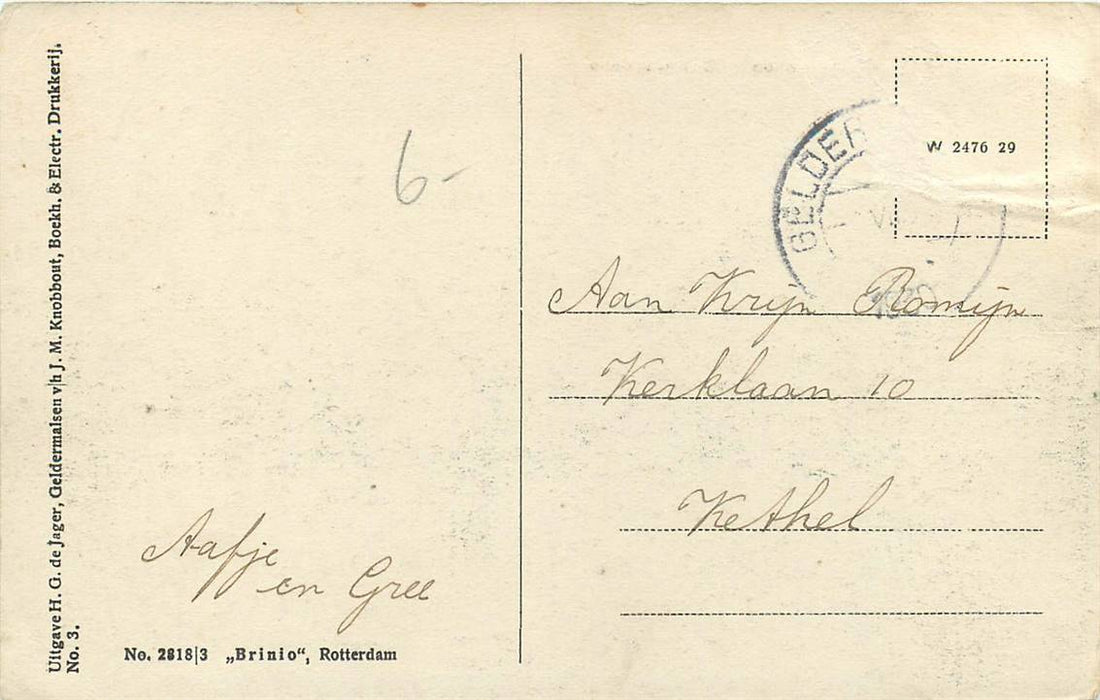 Uitgave H. G. de Jager, Geldermalsen v|h J. M. Knobbout, Boekh. & Electr. Drukkerij.
No. 3.
6-
Aafje
en Gree
No. 2818|3 „Brinio“, Rotterdam
GELDER
W 2476 29
Aan Krijn Romijn
Kerklaan 10
Kethel